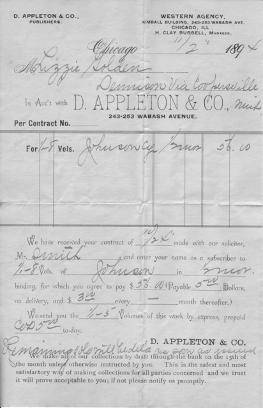 D. APPLETON & CO.,
PUBLISHERS.
WESTERN AGENCY,
KIMBALL BUILDING, 243-253 WABASH AVE.
CHICAGO, ILL.
H. CLAY RUSSELL, MANAGER.
Chicago 11/2 1894
M Lizzie Golden
Dennison Via Coopersville
Mich
In Acc't with D. APPLETON & CO.,
243-253 WABASH AVENUE.
Per Contract No.
For 1-8 Vols. Johnson Cy 56.00
We have received your contract of made with our solicitor,
Mr. Smith and enter your name as a subscriber to
1-8 Vols. of Johnson in
binding, for which you agree to pay $56.00 (Payable 5.00 Dollars,
on delivery, and $3.00 every — month thereafter.)
We send you the 1-5 Volumes of this week by express, prepaid
COD 5.00 to-day.
D. APPLETON & CO.
Remaining Vols will be sent as soon as issued
We make all of our collections by draft through the bank on the 15th of
the month unless otherwise instructed by you. This is the safest and most
satisfactory way of making collections for all parties concerned and we trust it
will prove acceptable to you; if not please notify us promptly.